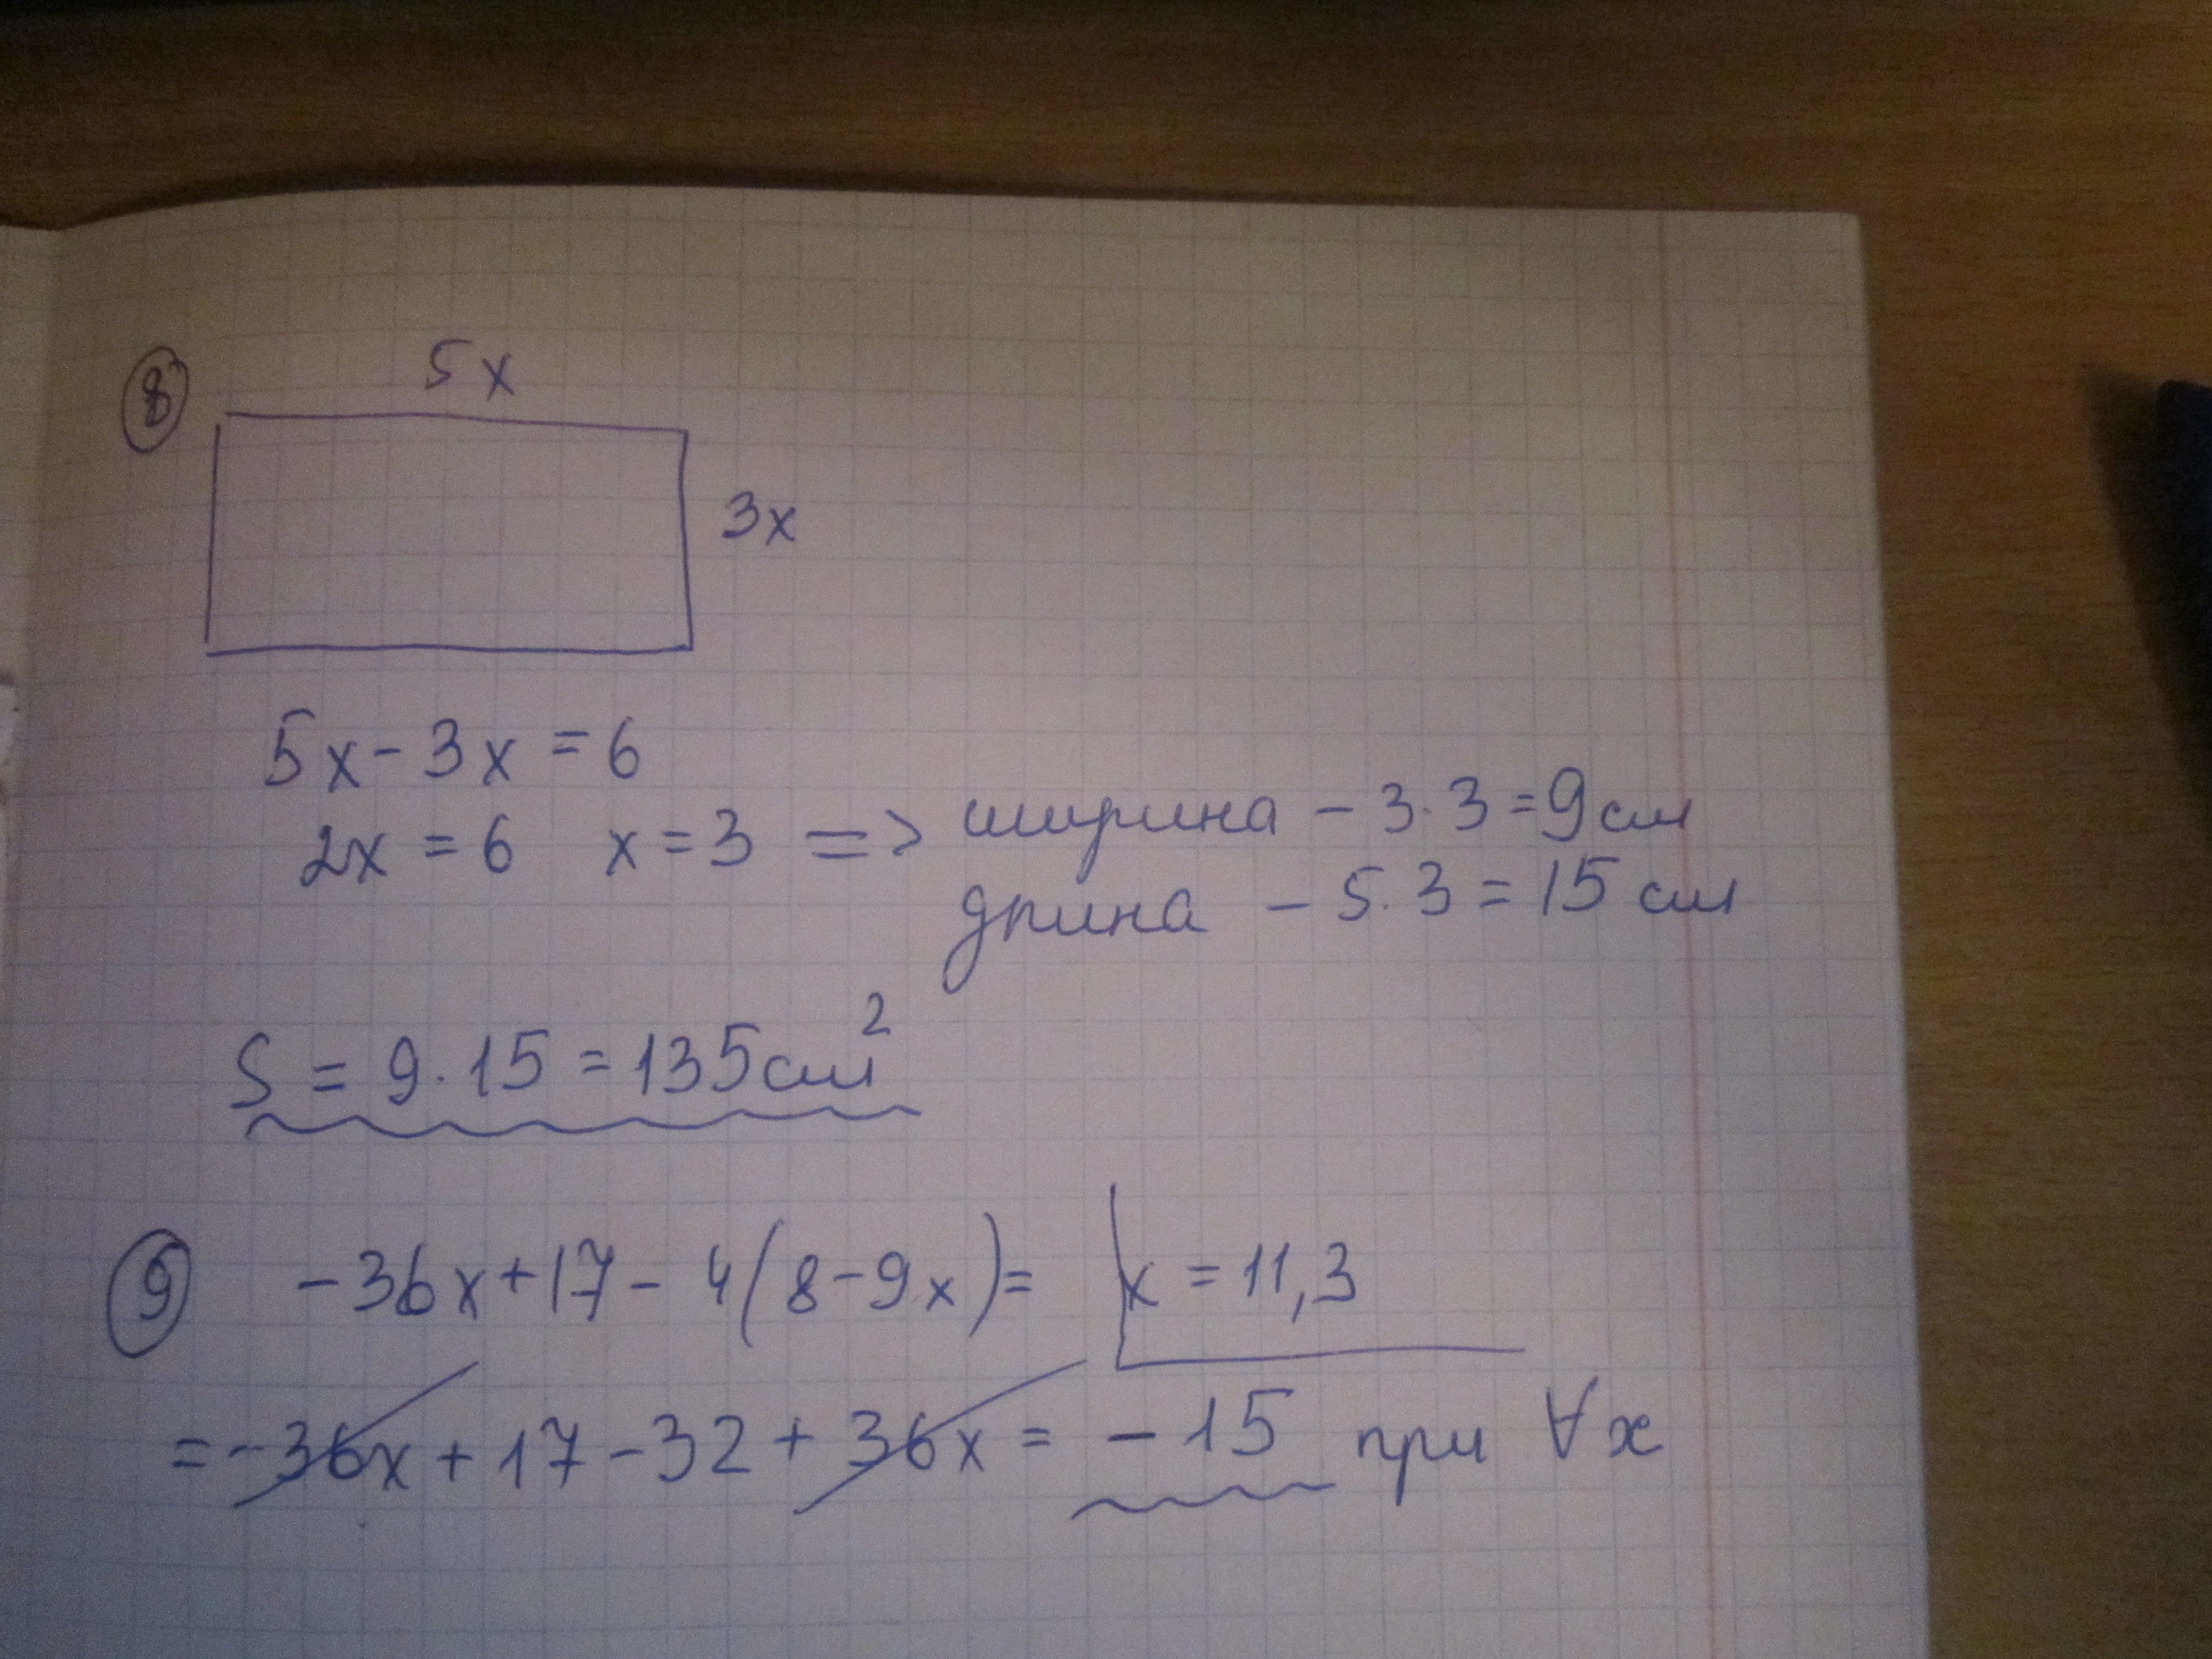 8
5x
3x
5x - 3x = 6
2x = 6 x = 3 => ширина - 3·3 = 9см
длина - 5·3 = 15 см
S = 9·15 = 135см²
9 -36x + 17 - 4(8 - 9x) = x = 11,3
= -36x + 17 - 32 + 36x = -15 при ∀x